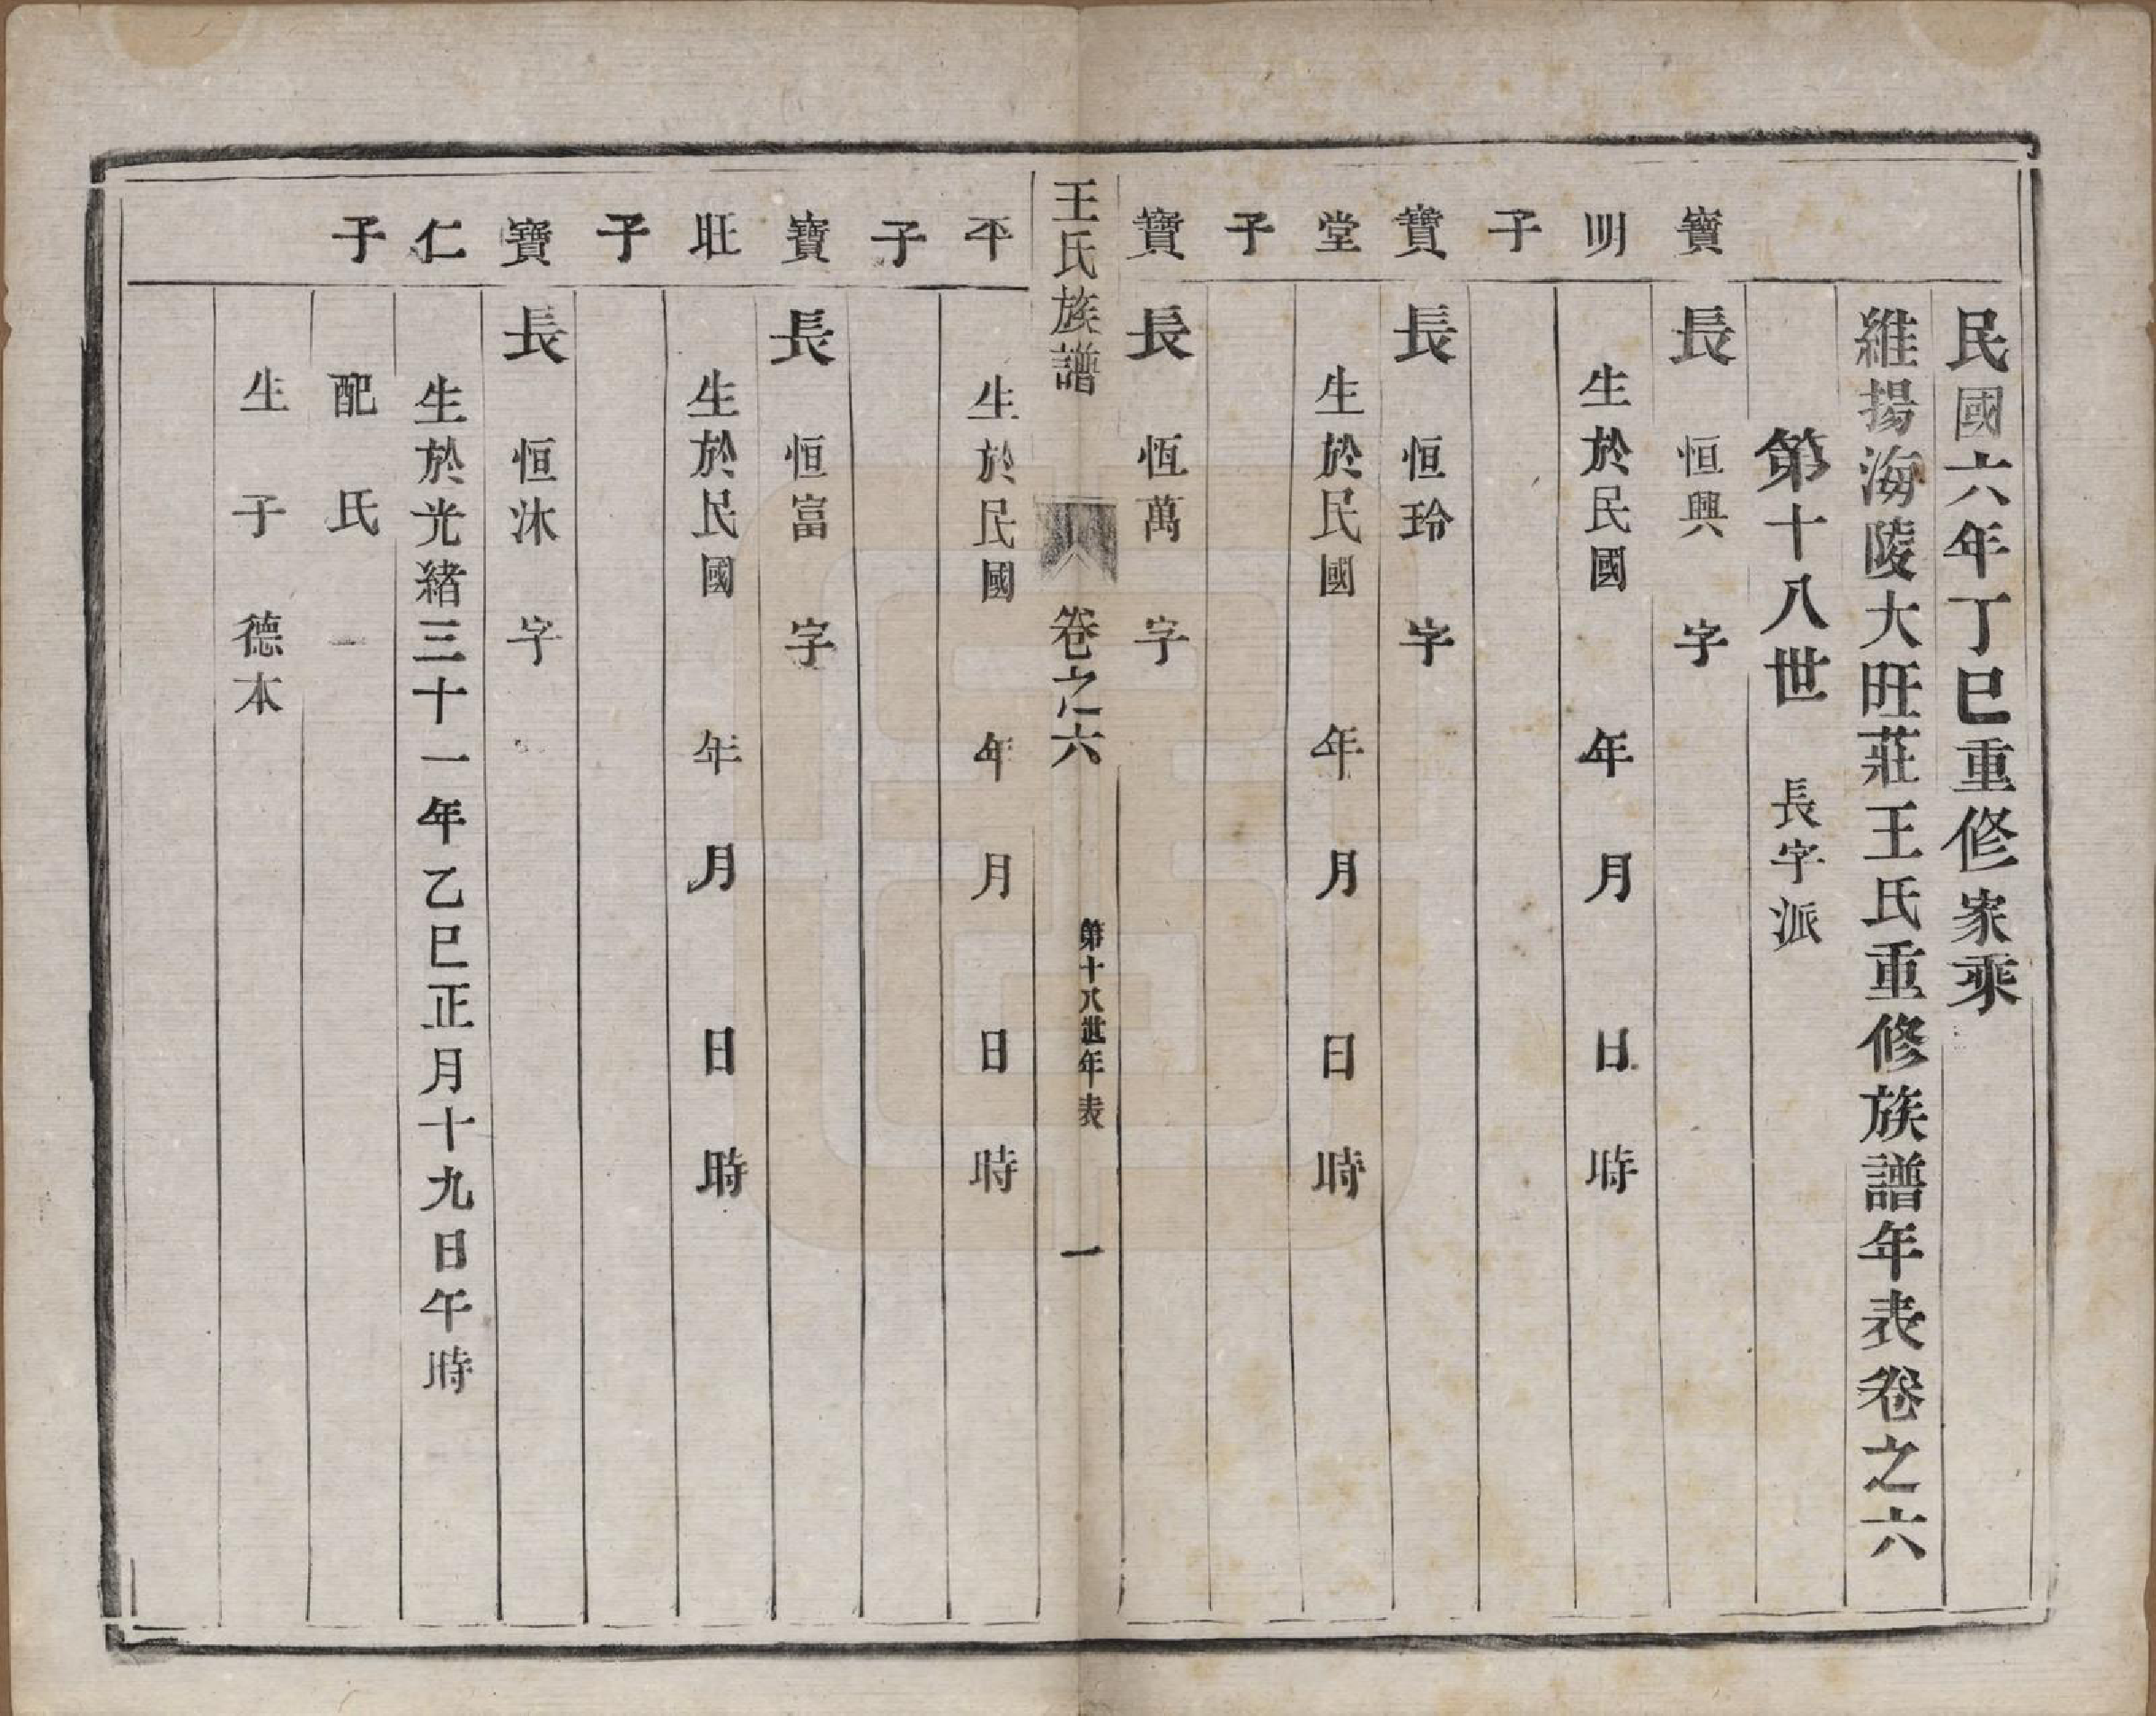 民國六年丁巳重修家乘
維揚海陵大旺莊王氏重修族譜年表卷之六
第十八世 長字派
寶 長 恒興 字
明 生於民國 年 月 日 時
子
寶 長 恒玲 字
堂 生於民國 年 月 日 時
子
寶 長 恆萬 字
王氏族譜 卷之六 第十八世年表 一
平 生於民國 年 月 日 時
子
寶 長 恒富 字
壯 生於民國 年 月 日 時
子
寶 長 恒沐 字
仁 生於光緒三十一年乙巳正月十九日午時
子 配 氏
生 子 德本